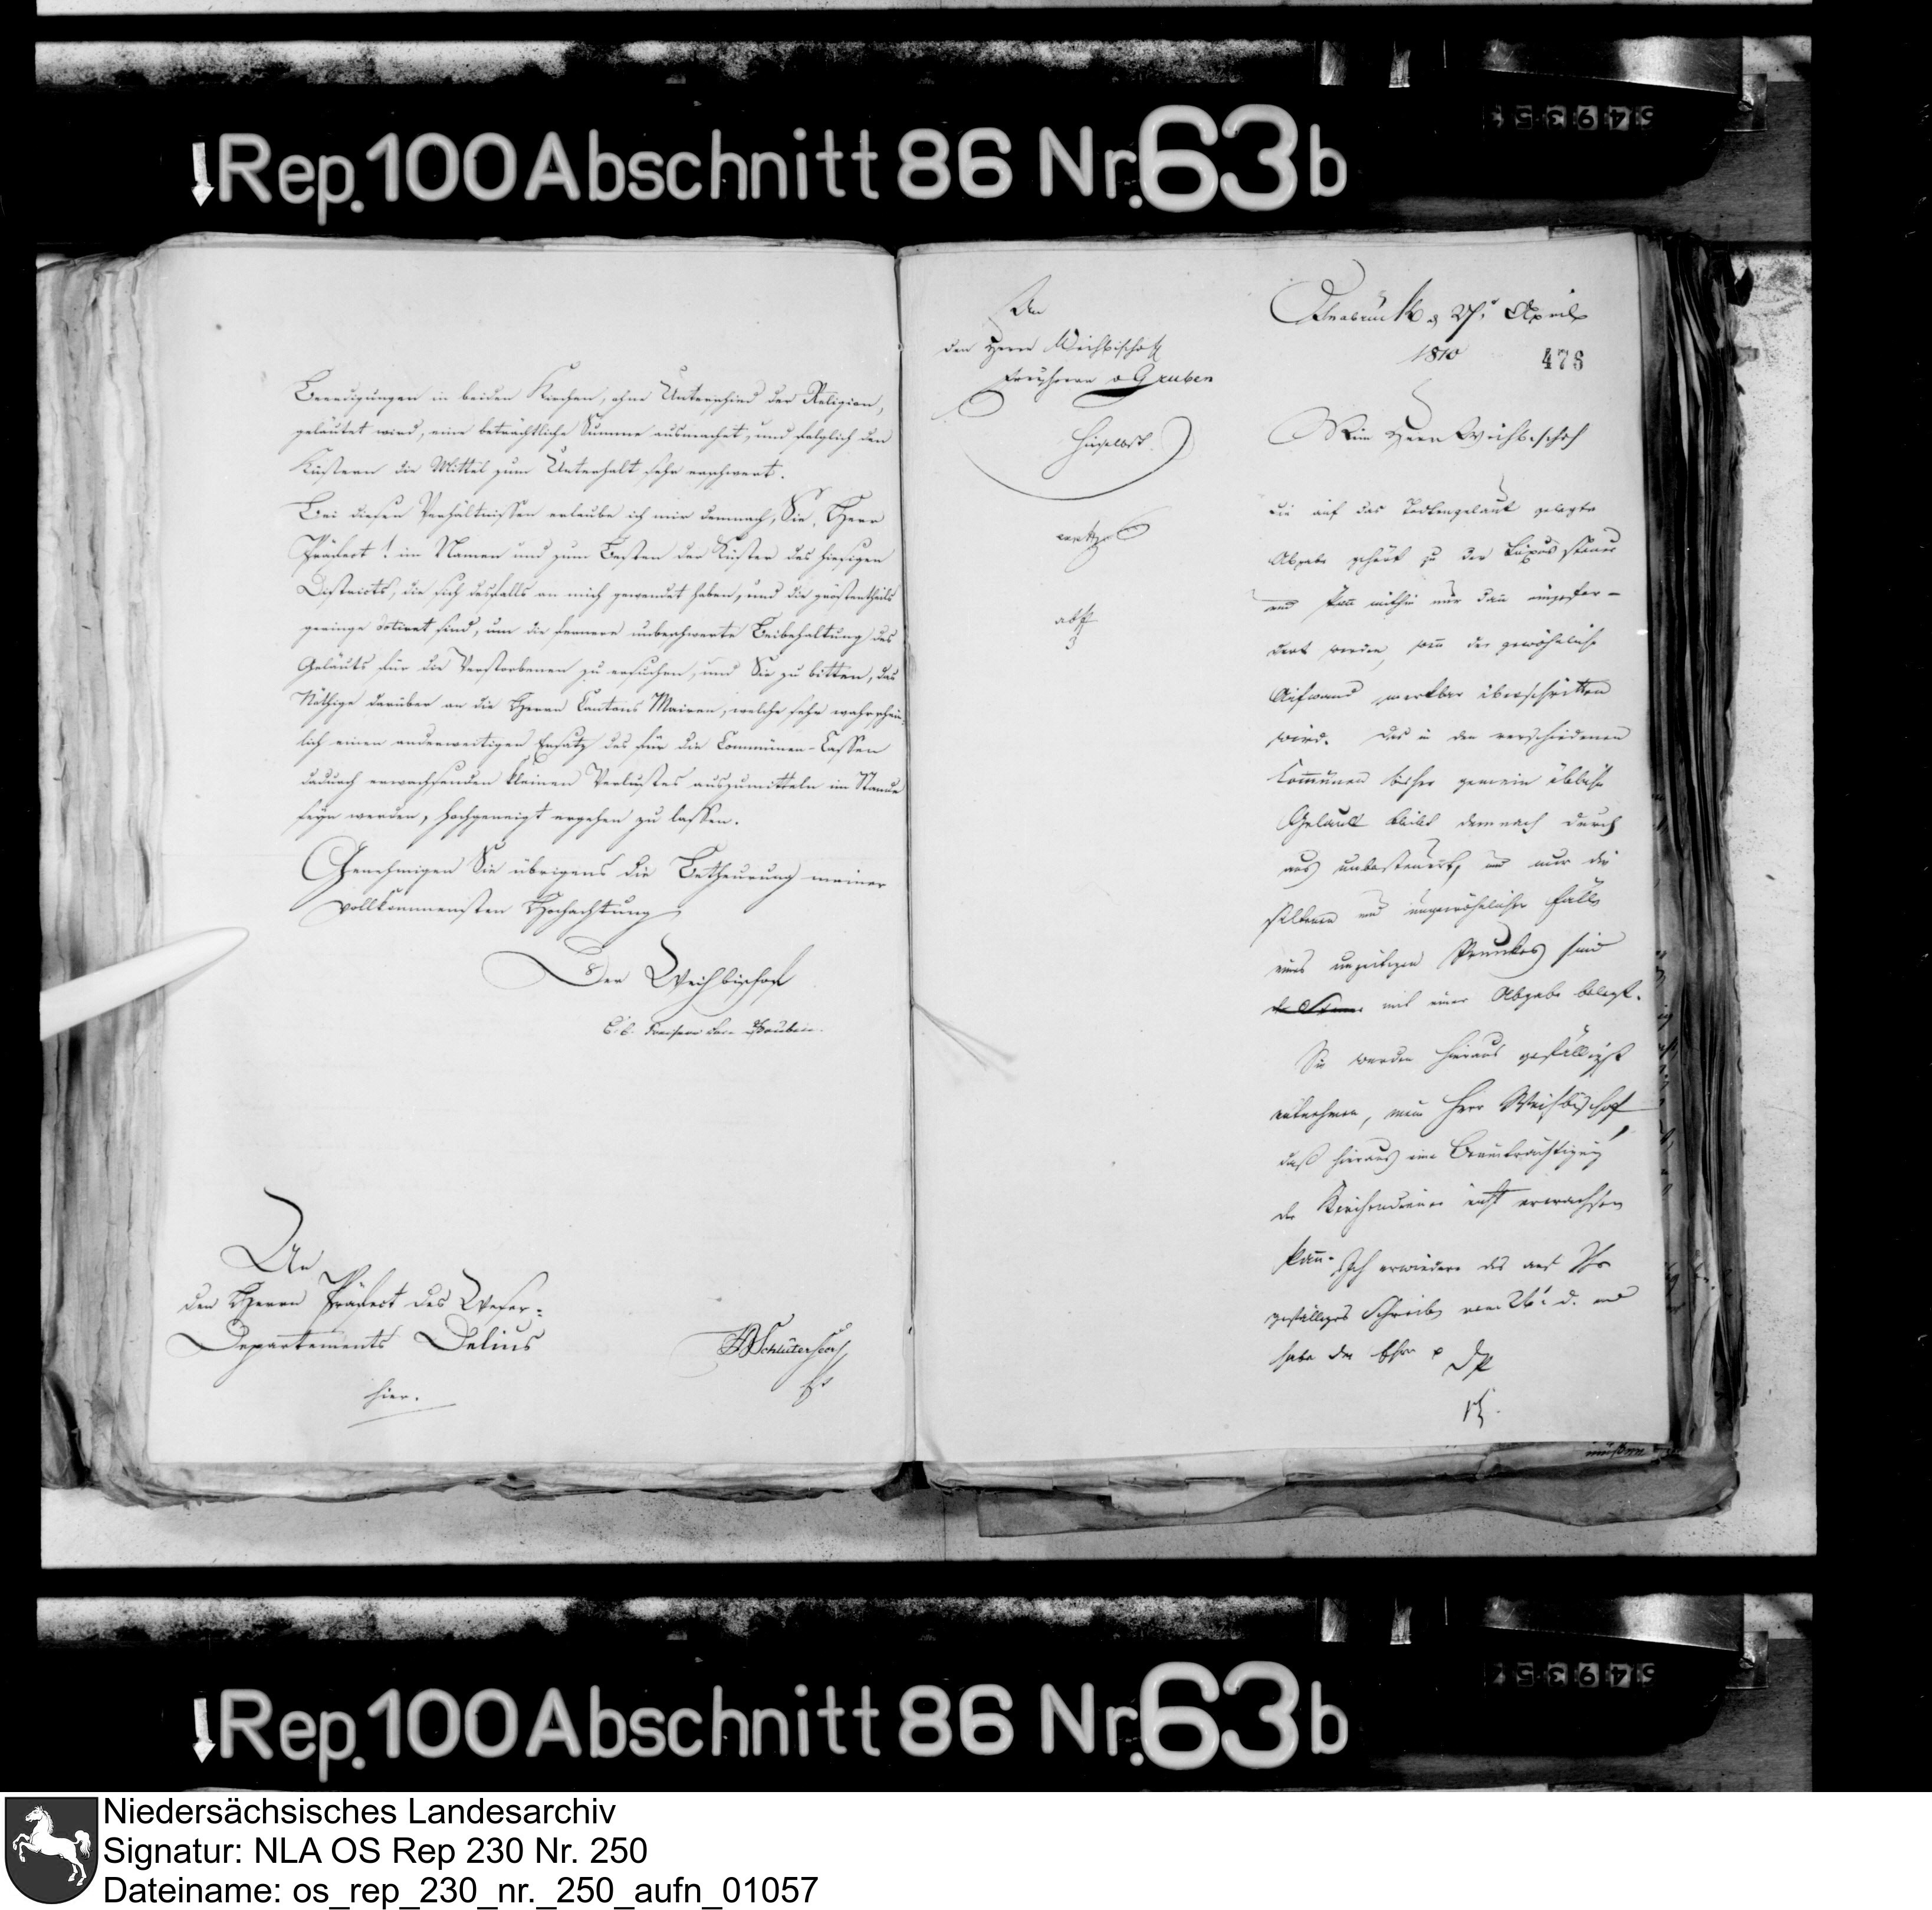 Rep. 100 Abschnitt 86 Nr. 63 b
Beerdigungen in beiden Kirchen, ohne Unterschied der Religion,
geläutet wird, eine beträchtliche Summe ausmachet, und folglich den
Küstern die Mittel zum Unterhalt sehr erschwert.
Bei diesen Verhältnissen erlaube ich mir demnach, Sie, Herr
Präfect! im Namen und zum Besten der Küster des hiesigen
Districts, die sich desfalls an mich gewendet haben, und die größtentheils
geringe dotiret sind, um die fernere unbeschwerte Beibehaltung des
Geläuts für die Verstorbenen zu ersuchen, und Sie zu bitten, das
Nöthige darüber an die Herrn Cantons Mairen, welche sehr wahrschein-
lich einen anderweitigen Ersatz des für die Communen-Cassen
dadurch erwachsenden kleinen Verlustes auszumitteln im Stande
seyn werden, hochgeneigt ergehen zu lassen.
Genehmigen Sie übrigens die Betheurung meiner
vollkommensten Hochachtung
Der Weihbischof
Freiherr von Gruben.
An
den Herrn Präfect des Weser-
Departements Delius
hier.
An
den Herrn Weihbischof
Freyherrn v Gruben
Hieselbst
Osnabrück d 27. April
1810
478
Mein Herr Weihbischof
die auf das Todtengeläut gelegte
Abgabe gehört zu der Luxussteuer
und kann mithin nur dann eingefor-
dert werden, wenn der gewöhnliche
Aufwand merkbar überschritten
wird. Das in den verschiedenen
Communen bisher gemein übliche
Geläut bleibt demnach durch
aus unbesteuert, und nur die
seltenen und ungewöhnlichen Fälle
eines unzeitigen Prunkes sind
mit einer Abgabe belegt.
Sie werden hieraus gefälligst
entnehmen, mein Herr Weihbischof,
daß hieraus eine Beeinträchtigung
der Kirchendiener nicht erwachsen
kann. Ich erwiedere das auf Ihr
gefälliges Schreiben vom 26. d. und
habe die Ehre
Rep. 100 Abschnitt 86 Nr. 63 b
Niedersächsisches Landesarchiv
Signatur: NLA OS Rep 230 Nr. 250
Dateiname: os_rep_230_nr._250_aufn_01057